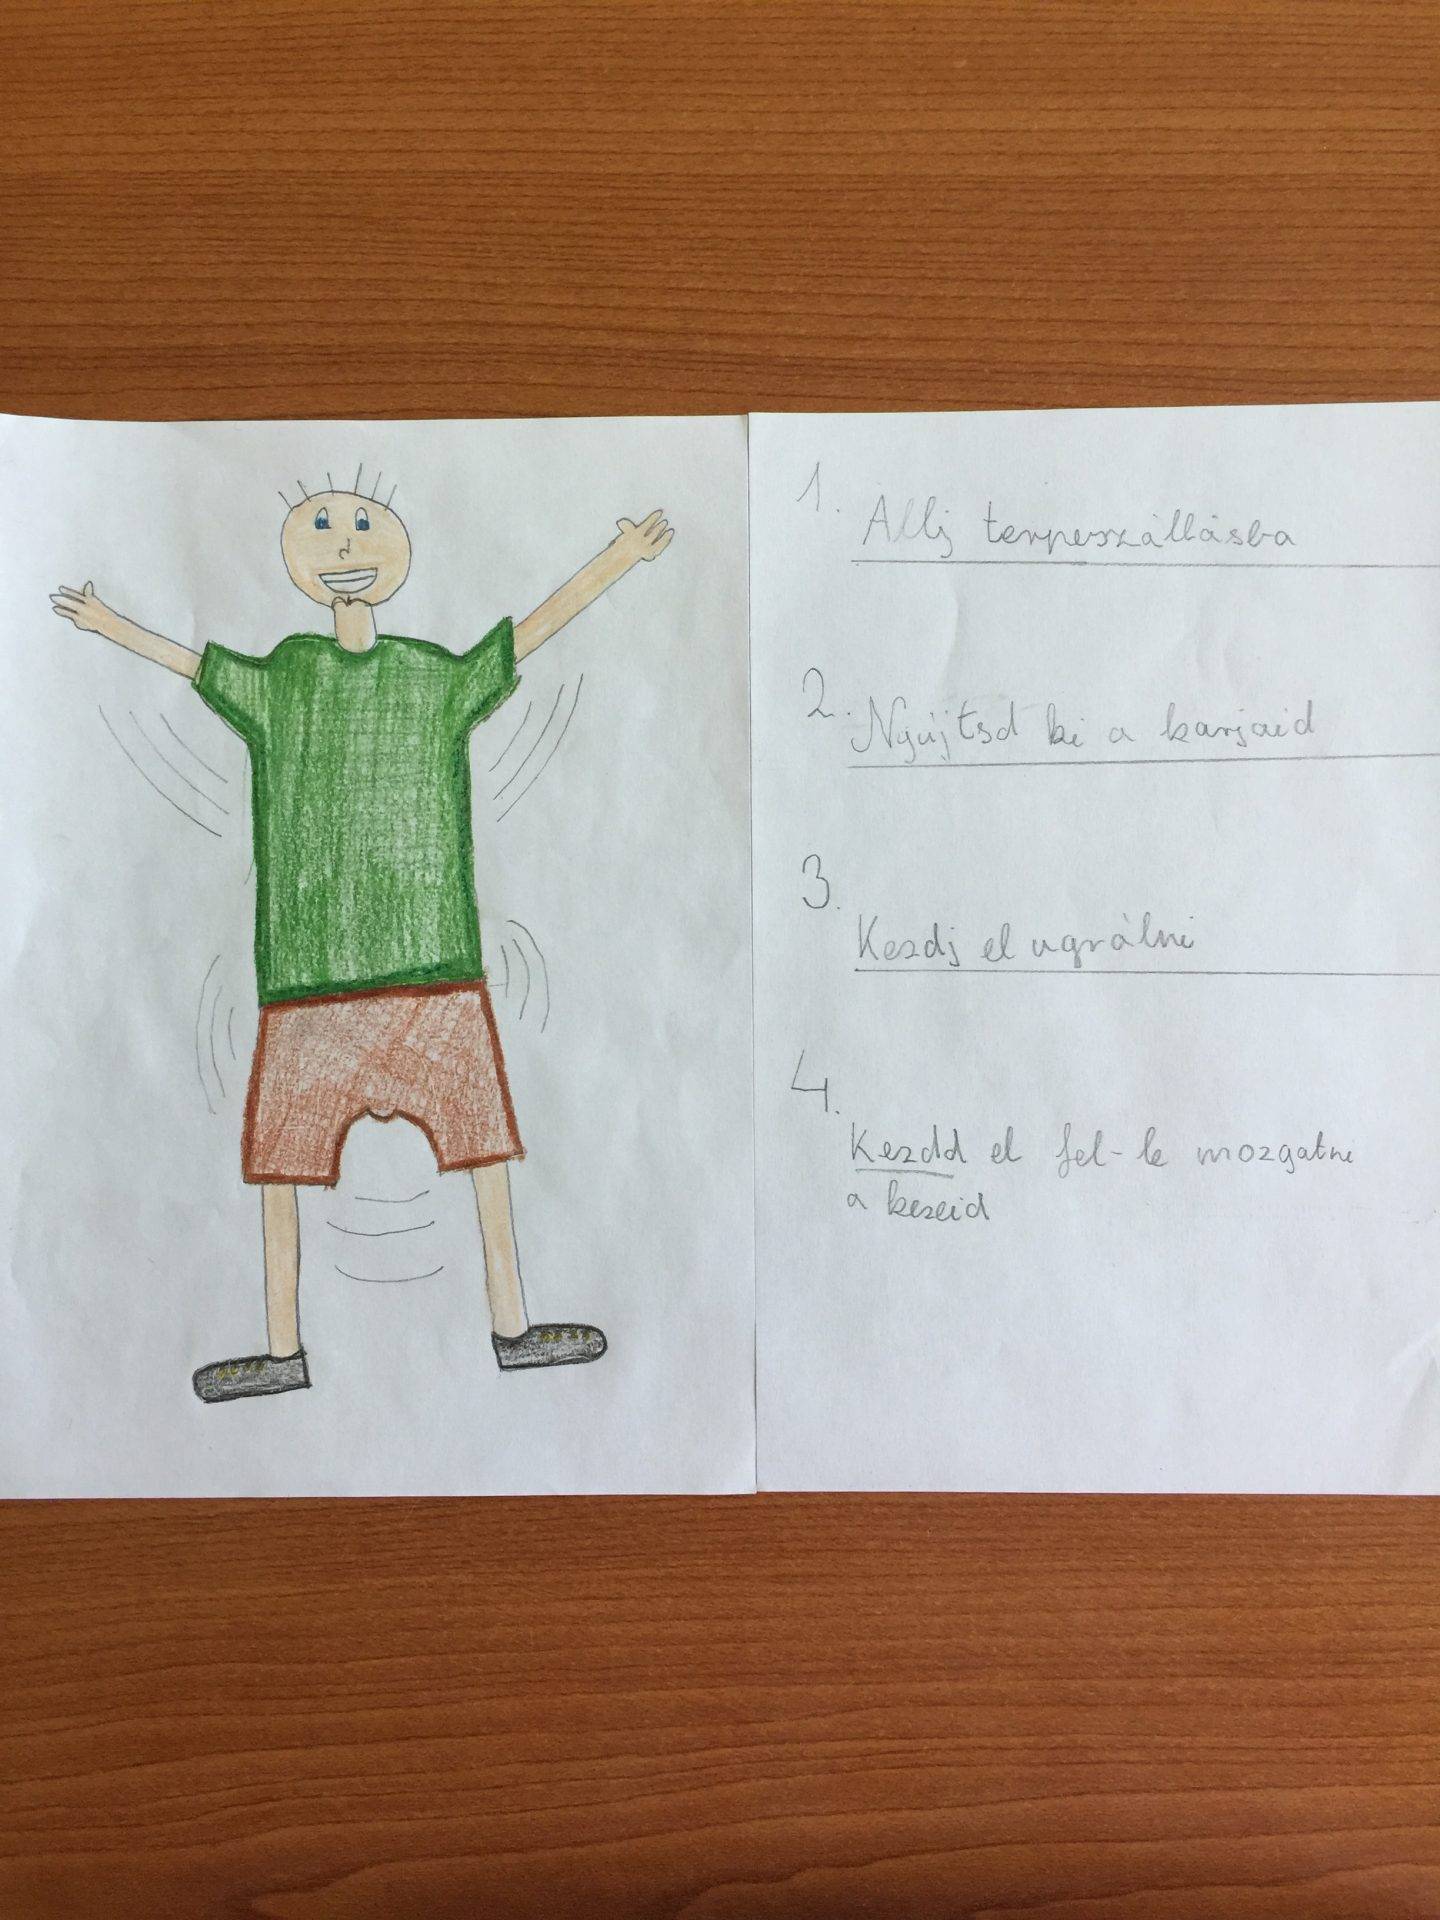 1. Állj terpeszállásba
2. Nyújtsd ki a karjaid
3. Kezdj el ugrálni
4. Kezdd el fel-le mozgatni
a kezeid